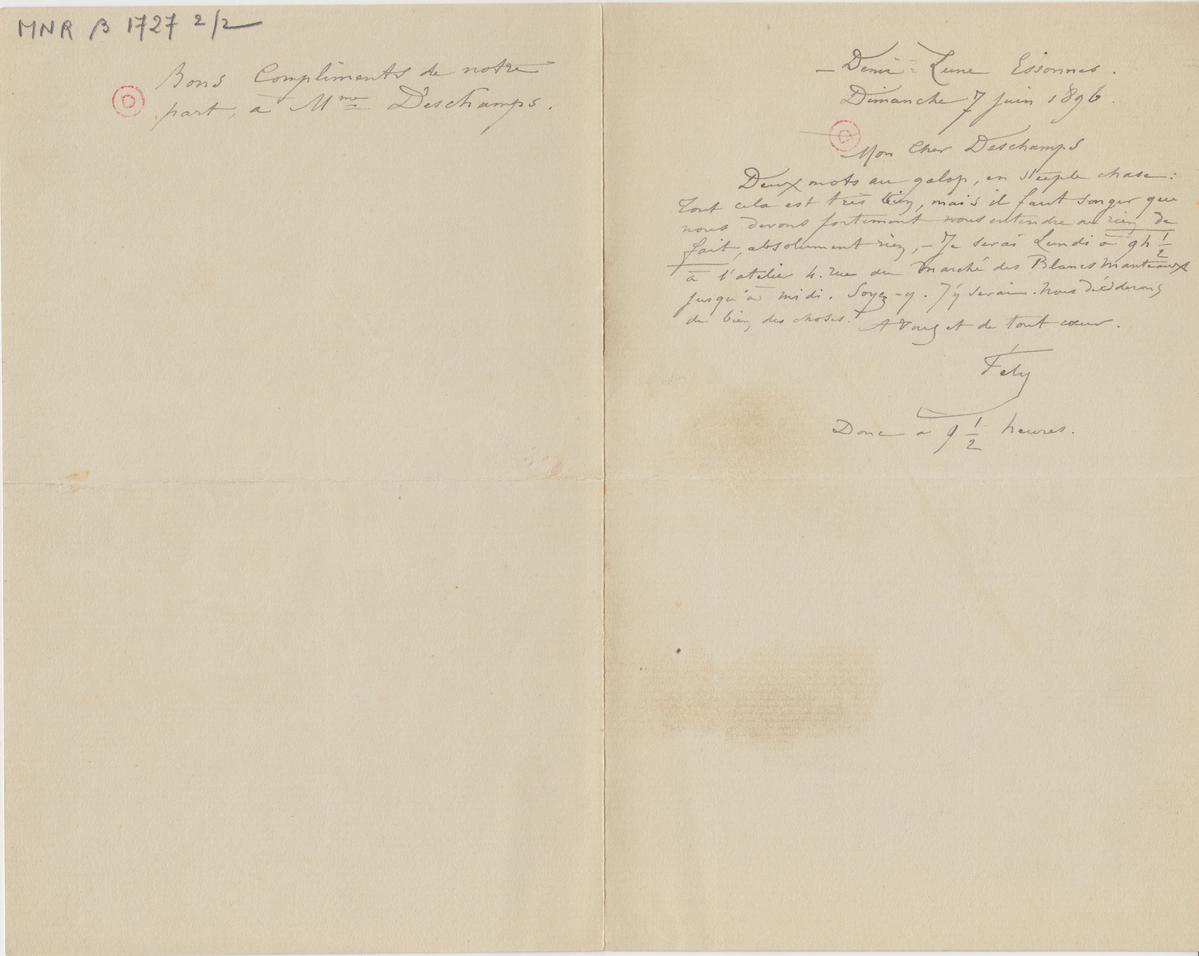 MNR β 1727 2/2
Bons Compliments de notre
part, à Mme Deschamps.
– Demi-Lune Essonnes.
Dimanche 7 juin 1896.
Mon Cher Deschamps
Deux mots au galop, en steeple chase :
Tout cela est très bien, mais il faut songer que
nous devons fortement nous entendre ou rien de
fait, absolument rien, – Je serai Lundi à 9h ½
à l'atelier 4. rue du Marché des Blancs Manteaux
jusqu'à midi. Soyez-y. J'y serai. Nous déciderons
de bien des choses. A Vous et de tout cœur.
Fély
Donc à 9 ½ heures.